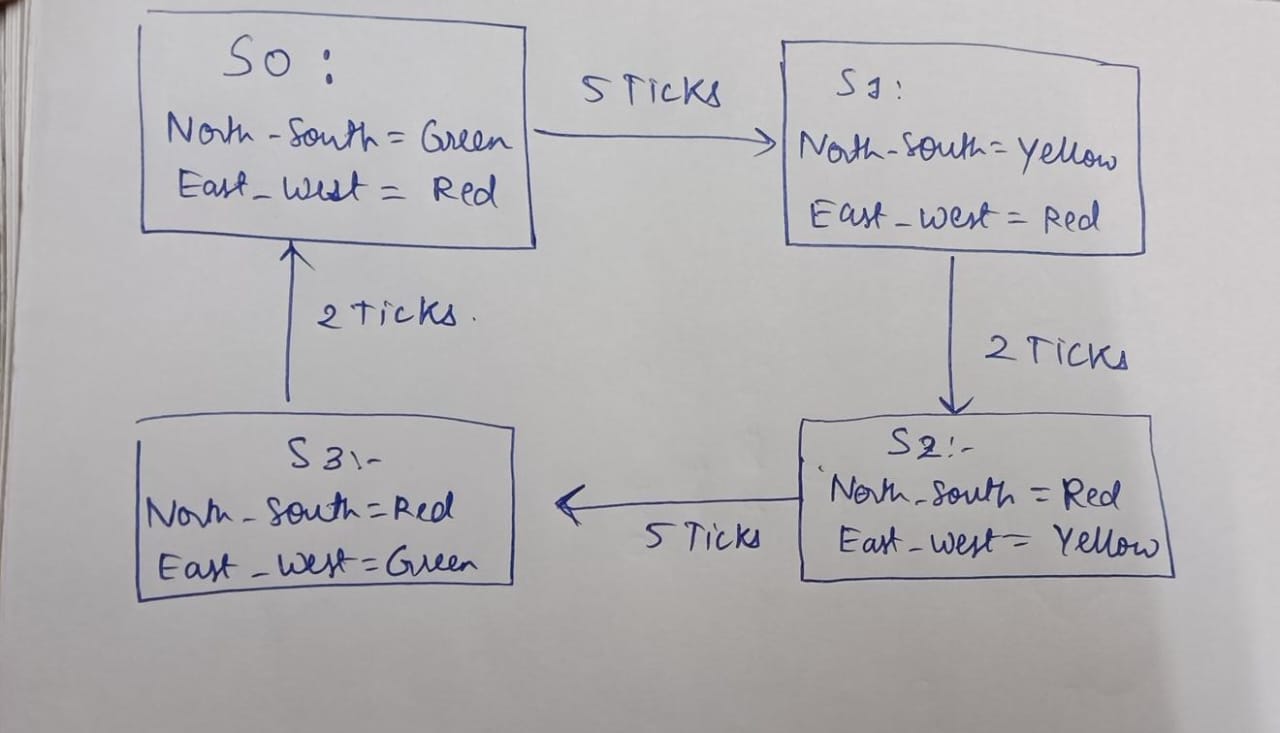 S0 :
North - South = Green
East _ West = Red
5 Ticks
S1 :
North - South = Yellow
East _ West = Red
2 Ticks.
2 Ticks
S3 :-
North _ South = Red
East _ West = Green
5 Ticks
S2 :-
North _ South = Red
East _ West = Yellow